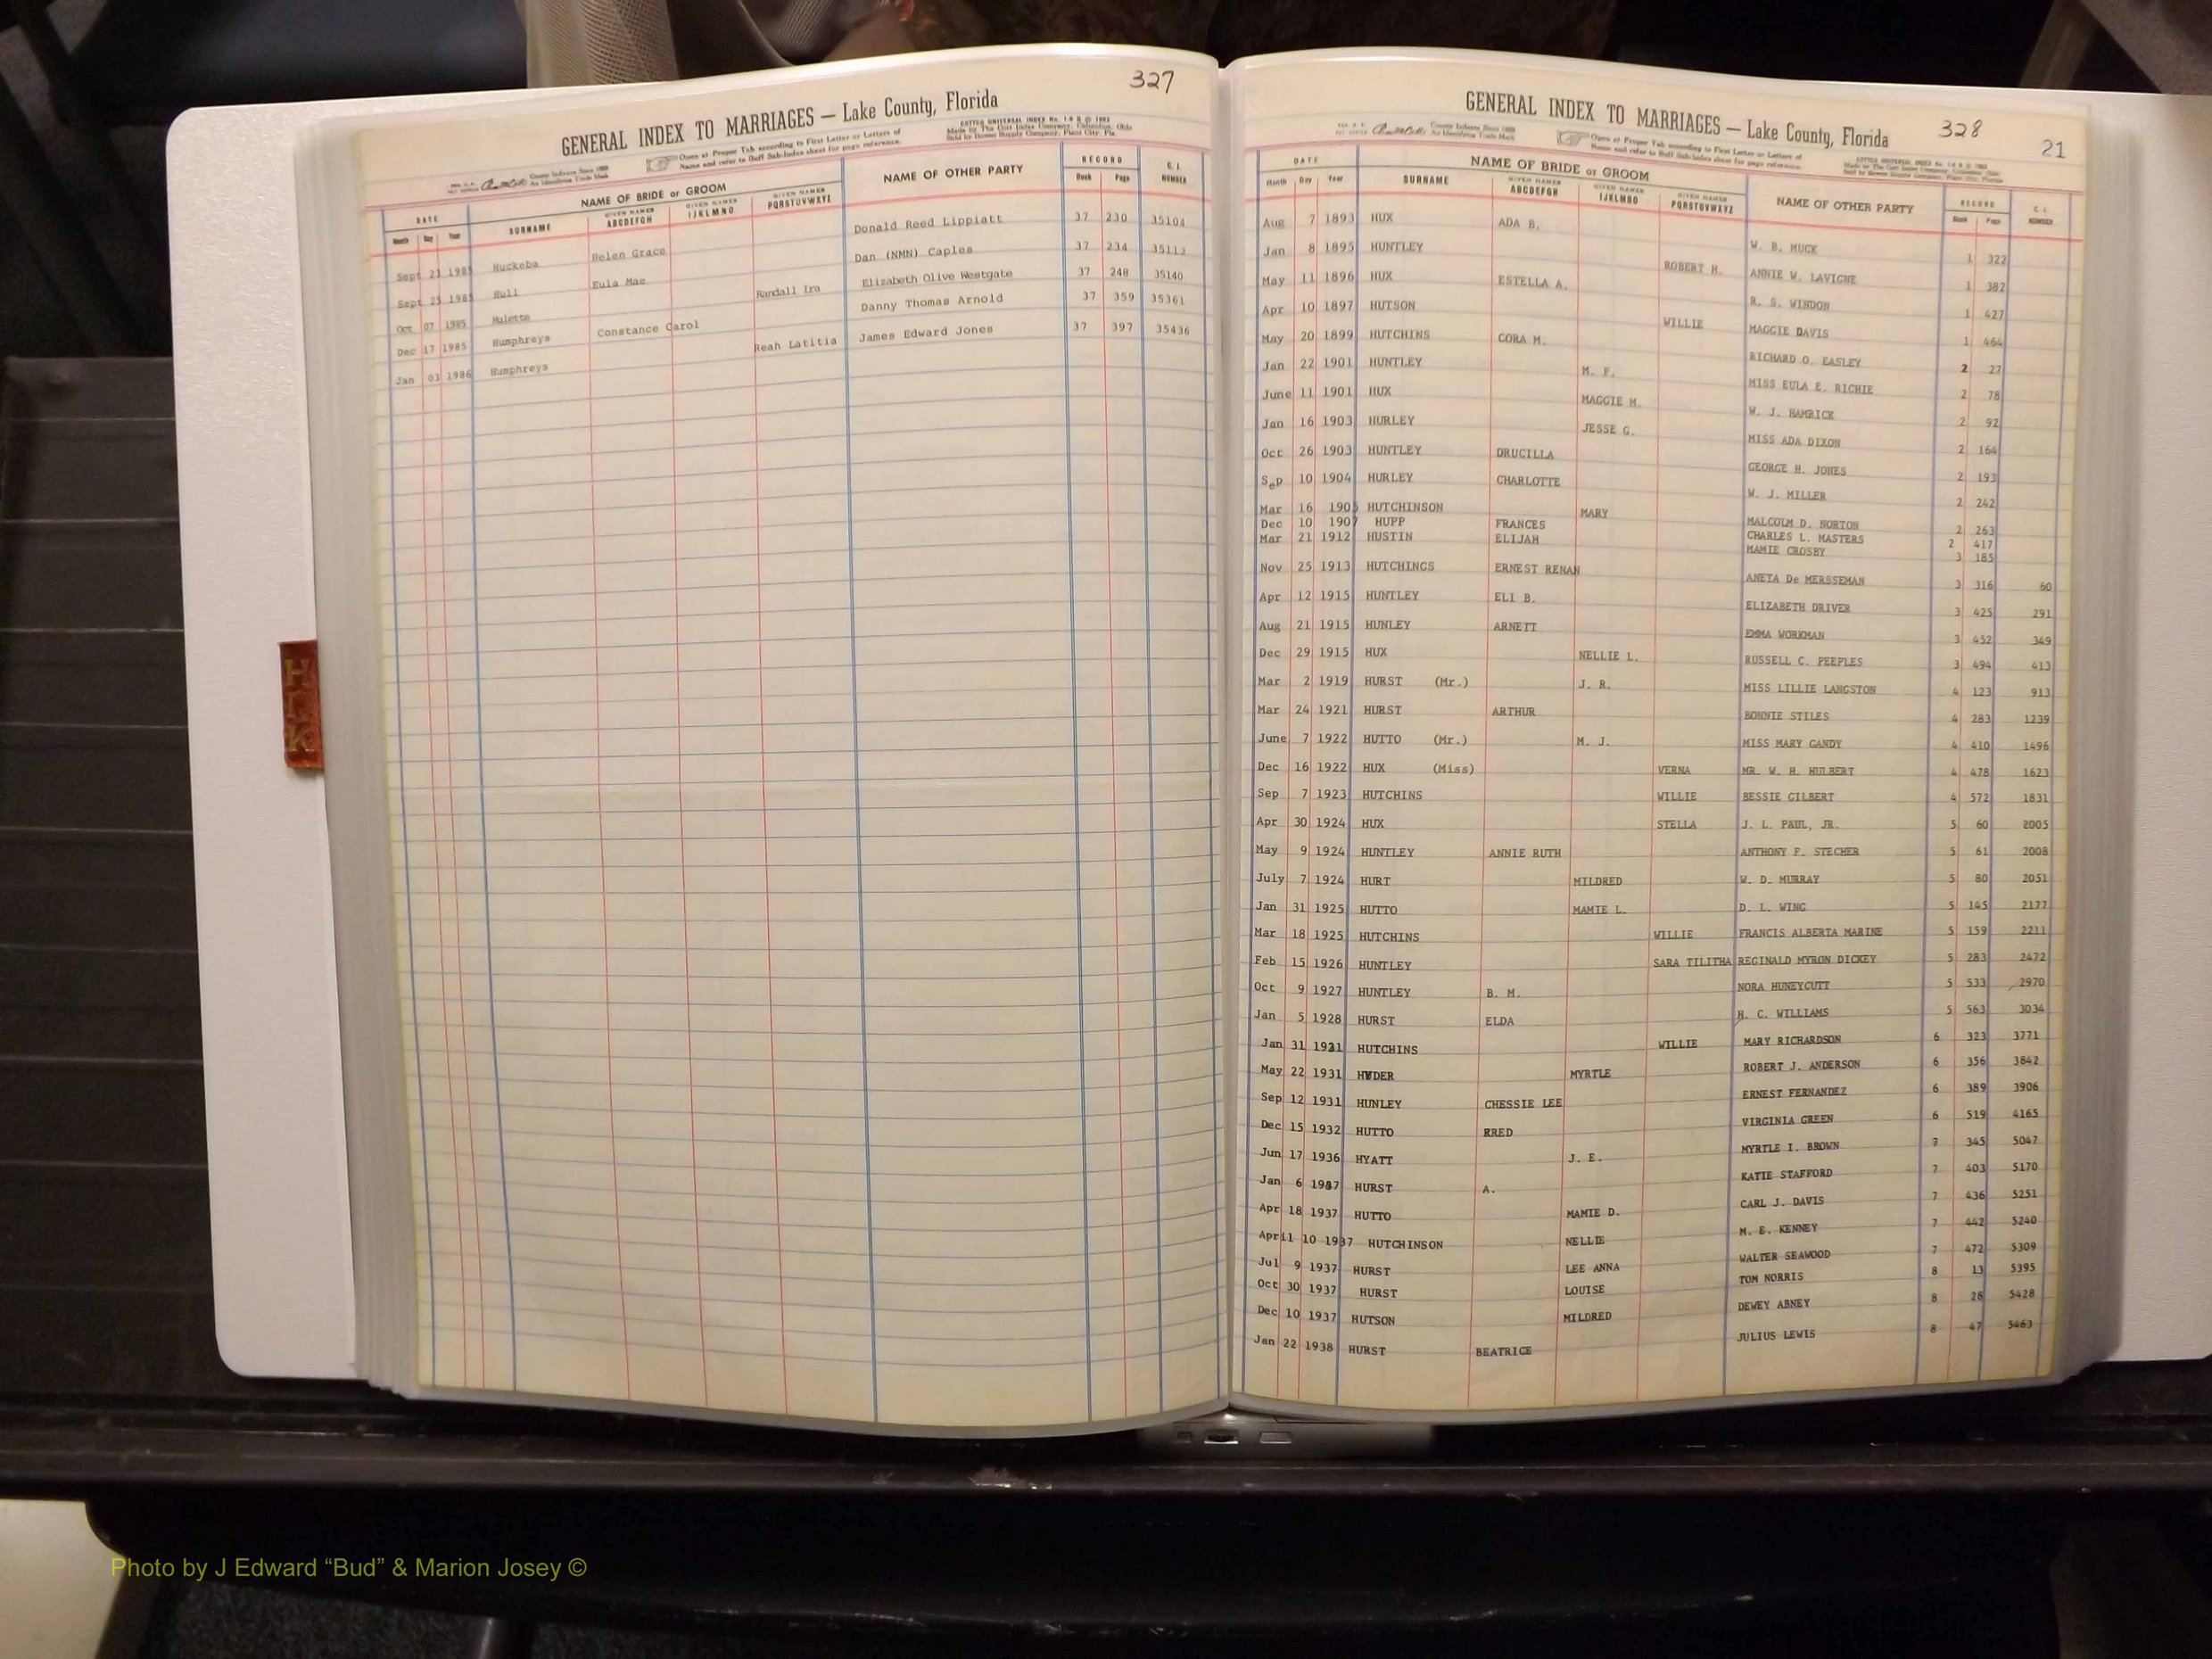 327
GENERAL INDEX TO MARRIAGES — Lake County, Florida
Open at Proper Tab according to First Letter or Letters of
Name and refer to Buff Sub-Index sheet for page reference.
COTTCO UNIVERSAL INDEX No. 1
Made by The Cott Index Company, Columbus, Ohio
Sold by Bowen Supply Company, Plant City, Fla.
County Indexes Since 1888
An Identifying Trade Mark
DATE NAME OF BRIDE or GROOM NAME OF OTHER PARTY RECORD C. I. NUMBER
Month Day Year SURNAME GIVEN NAMES ABCDEFGH GIVEN NAMES IJKLMNO GIVEN NAMES PQRSTUVWXYZ Book Page
Sept 23 1985 Huckeba Helen Grace Donald Reed Lippiatt 37 230 35104
Sept 25 1985 Hull Eula Mae Dan (NMN) Caples 37 234 35112
Oct 07 1985 Hulette Randall Ira Elizabeth Olive Westgate 37 248 35140
Dec 17 1985 Humphreys Constance Carol Danny Thomas Arnold 37 359 35361
Jan 03 1986 Humphreys Reah Latitia James Edward Jones 37 397 35436
H
I
K
GENERAL INDEX TO MARRIAGES — Lake County, Florida 328 21
County Indexes Since 1888
An Identifying Trade Mark
Open at Proper Tab according to First Letter or Letters of
Name and refer to Buff Sub-Index sheet for page reference.
DATE NAME OF BRIDE or GROOM NAME OF OTHER PARTY RECORD C. I. NUMBER
Month Day Year SURNAME GIVEN NAMES ABCDEFGH GIVEN NAMES IJKLMNO GIVEN NAMES PQRSTUVWXYZ Book Page
Aug 7 1893 HUX ADA B. W. B. MUCK 1 322
Jan 8 1895 HUNTLEY ROBERT H. ANNIE W. LAVIGNE 1 382
May 11 1896 HUX ESTELLA A. R. S. WINDON 1 427
Apr 10 1897 HUTSON WILLIE MAGGIE DAVIS 1 464
May 20 1899 HUTCHINS CORA M. RICHARD O. EASLEY 2 27
Jan 22 1901 HUNTLEY M. F. MISS EULA E. RICHIE 2 78
June 11 1901 HUX MAGGIE M. W. J. HAMRICK 2 92
Jan 16 1903 HURLEY JESSE G. MISS ADA DIXON 2 164
Oct 26 1903 HUNTLEY DRUCILLA GEORGE H. JONES 2 193
Sep 10 1904 HURLEY CHARLOTTE W. J. MILLER 2 242
Mar 16 1905 HUTCHINSON MARY MALCOLM D. NORTON 2 263
Dec 10 1907 HUPP FRANCES CHARLES L. MASTERS 2 417
Mar 21 1912 HUSTIN ELIJAH MAMIE CROSBY 3 185
Nov 25 1913 HUTCHINGS ERNEST RENAN ANETA De MERSSEMAN 3 316 60
Apr 12 1915 HUNTLEY ELI B. ELIZABETH DRIVER 3 425 291
Aug 21 1915 HUNLEY ARNETT EMMA WORKMAN 3 452 349
Dec 29 1915 HUX NELLIE L. RUSSELL C. PEEPLES 3 494 413
Mar 2 1919 HURST (Mr.) J. R. MISS LILLIE LANGSTON 4 123 913
Mar 24 1921 HURST ARTHUR BONNIE STILES 4 283 1239
June 7 1922 HUTTO (Mr.) M. J. MISS MARY GANDY 4 410 1496
Dec 16 1922 HUX (Miss) VERNA MR. W. H. HULBERT 4 478 1623
Sep 7 1923 HUTCHINS WILLIE BESSIE GILBERT 4 572 1831
Apr 30 1924 HUX STELLA J. L. PAUL, JR. 5 60 2005
May 9 1924 HUNTLEY ANNIE RUTH ANTHONY F. STECHER 5 61 2008
July 7 1924 HURT MILDRED W. D. MURRAY 5 80 2051
Jan 31 1925 HUTTO MAMIE L. D. L. WING 5 145 2177
Mar 18 1925 HUTCHINS WILLIE FRANCIS ALBERTA MARINE 5 159 2211
Feb 15 1926 HUNTLEY SARA TILITHA REGINALD MYRON DICKEY 5 283 2472
Oct 9 1927 HUNTLEY B. M. NORA HUNEYCUTT 5 533 2970
Jan 5 1928 HURST ELDA H. C. WILLIAMS 5 563 3034
Jan 31 1931 HUTCHINS WILLIE MARY RICHARDSON 6 323 3771
May 22 1931 HYDER MYRTLE ROBERT J. ANDERSON 6 356 3842
Sep 12 1931 HUNLEY CHESSIE LEE ERNEST FERNANDEZ 6 389 3906
Dec 15 1932 HUTTO RRED VIRGINIA GREEN 6 519 4165
Jun 17 1936 HYATT J. E. MYRTLE I. BROWN 7 345 5047
Jan 6 1937 HURST A. KATIE STAFFORD 7 403 5170
Apr 18 1937 HUTTO MAMIE D. CARL J. DAVIS 7 436 5251
April 10 1937 HUTCHINSON NELLIE M. E. KENNEY 7 442 5240
Jul 9 1937 HURST LEE ANNA WALTER SEAWOOD 7 472 5309
Oct 30 1937 HURST LOUISE TOM NORRIS 8 13 5395
Dec 10 1937 HUTSON MILDRED DEWEY ABNEY 8 28 5428
Jan 22 1938 HURST BEATRICE JULIUS LEWIS 8 47 5463
Photo by J Edward “Bud” & Marion Josey ©